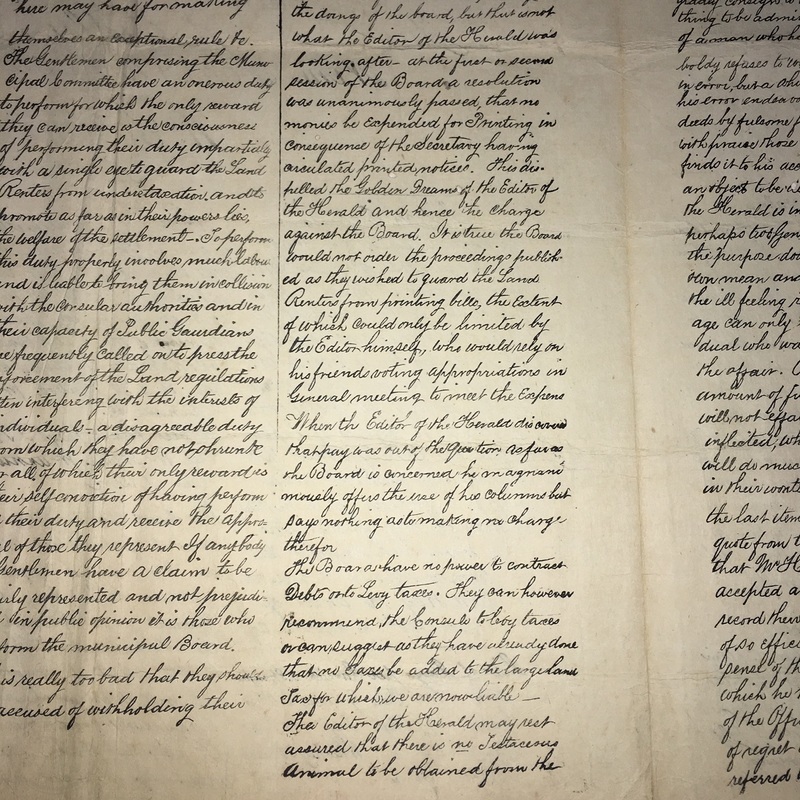 here may have for making
themselves an exceptional rule &c.
The Gentlemen comprising the Muni
cipal Committee have an onerous duty
to perform for which the only reward
they can receive is the consciousness
of performing their duty impartialy
with a single eye to guard the Land
Renters from undue taxation and to
promote as far as in their powers lies,
the welfare of the settlement – To perform
this duty properly involves much labour
and is liable to bring them in collision
with the Consular authorities and in
their capacity of Public Gaurdians
are frequently Called on to press the
nforcement of the Land regulations
ten interfering with the interests of
ndividuals – a disagreeable duty
om which they have not shrunk
r all of which their only reward is
eir self conviction of having perform
their duty and receive the appro-
l of those they represent If anybody
Gentlemen have a claim to be
rly represented and not prejudi-
in public opinion it is those who
form the municipal Board.
is really too bad that they should
accused of withholding their
the doings of the board, but that is not
what the Editor of the Herald was
looking after – at the first or second
session of the Board a resolution
was unanimously passed, that no
monies be Expended for Printing in
consequence of the Secretary having
circulated printed notices. This dis-
pelled the Golden Dreams of the Editor of
the Herald and hence the charge
against the Board. It is true the Board
would not order the proceedings publish-
ed as they wished to guard the Land
Renters from printing bills, the Extent
of which could only be limited by
the Editor himself, who would rely on
his friends voting appropriations in
General meeting to meet the Expens
When the Editor of the Herald discovers
that pay was out of the Question as far as
the Board is concerned he magnani
mously offers the use of his columns but
says nothing as to making no charge
therefor
The Board have no power to contract
Debts or to Levy taxes. They can however
recommend, the Consuls to levy taxes
or can suggest as they have already done
that no Taxes be added to the large land
Tax for which we are now liable –
The Editor of the Herald may rest
assured that there is no Testaceous
Animal to be obtained from the
thing to be admi
of a man who ha
boldy refuses to
in error, but a
his error endeavo
deeds by fulsome f
with praise those
finds it to his acc
an object to be
the Herald is in
perhaps two Gen
the purpose do
own mean and
the ill feeling
age can only
dual who wa
the affair.
amount of f
will not effa
inflected, wh
will do muc
in their wont
the last item
quote from t
that Mr H
accepted a
record their
of so effici
pense of th
which he
of the Offi
of regret
referred